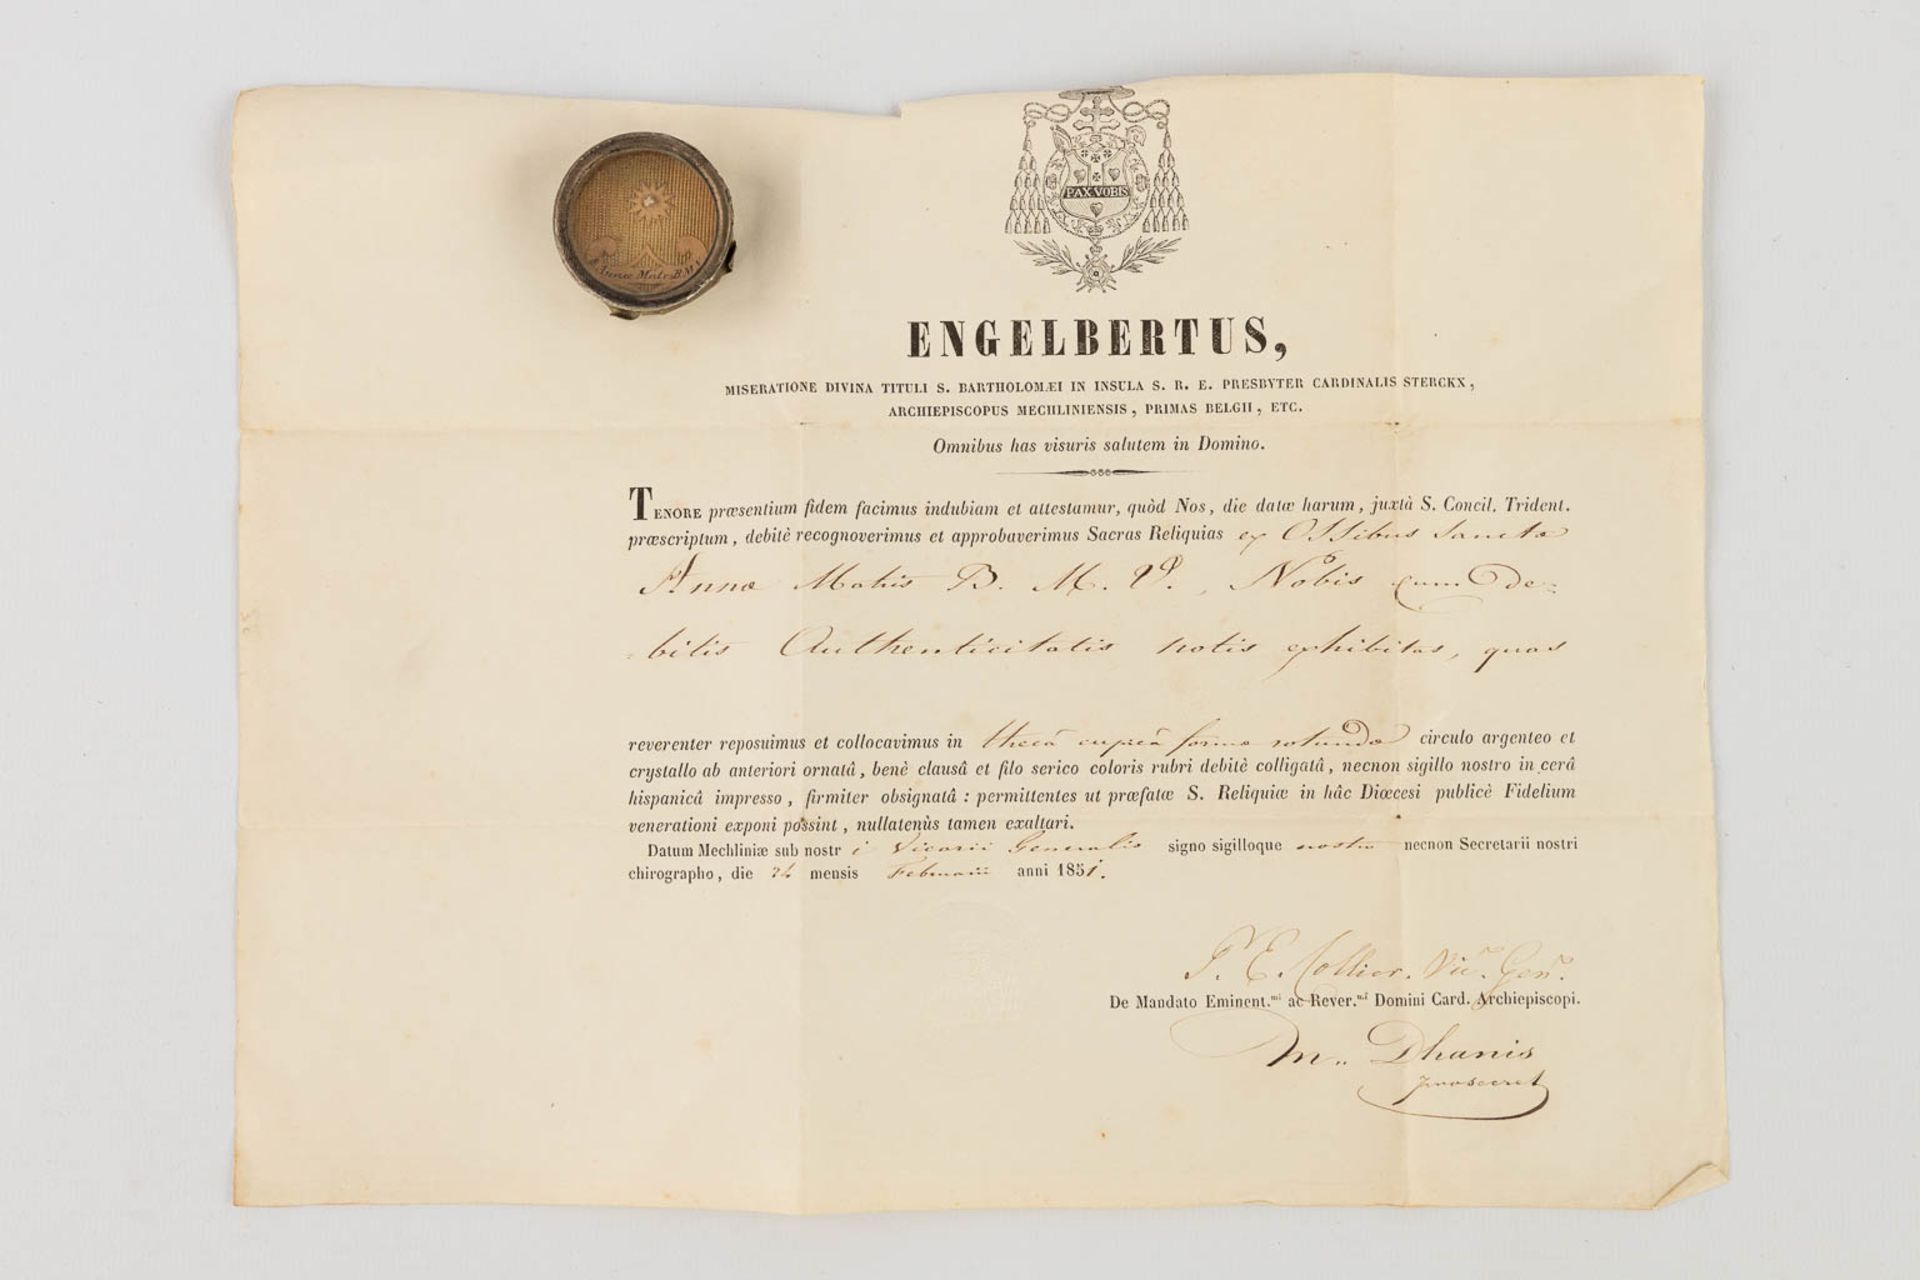 PAX VOBIS
Annæ Matris B M V
ENGELBERTUS,
MISERATIONE DIVINA TITULI S. BARTHOLOMÆI IN INSULA S. R. E. PRESBYTER CARDINALIS STERCKX,
ARCHIEPISCOPUS MECHLINIENSIS, PRIMAS BELGII, ETC.
Omnibus has visuris salutem in Domino.
TENORE præsentium fidem facimus indubiam et attestamur, quòd Nos, die datæ harum, juxtà S. Concil. Trident.
præscriptum, debitè recognoverimus et approbaverimus Sacras Reliquias ex Ossibus Sanctæ
Annæ Matris B. M. V., Nobis cum de-
bitis Authenticitatis notis exhibitas, quas
reverenter reposuimus et collocavimus in thecâ cupreâ formæ rotundæ circulo argenteo et
crystallo ab anteriori ornatâ, benè clausâ et filo serico coloris rubri debitè colligatâ, necnon sigillo nostro in cerâ
hispanicâ impresso, firmiter obsignatâ: permittentes ut præfatæ S. Reliquiæ in hâc Diœcesi publicè Fidelium
venerationi exponi possint, nullatenùs tamen exaltari.
Datum Mechliniæ sub nostri Vicarii Generalis signo sigilloque nostro necnon Secretarii nostri
chirographo, die 24 mensis Februarii anni 1851.
P. E. Collier. Vic. Gen.
De Mandato Eminent.mi ac Rever.mi Domini Card. Archiepiscopi.
M. Dhanis
prosecret